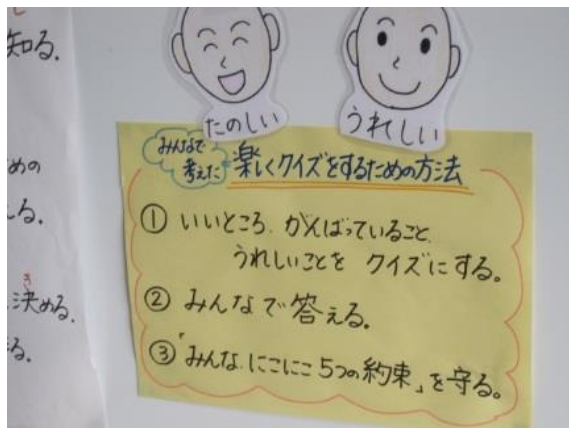 知る。
めの
る。
き
決める。
る。
たのしい
うれしい
みんなで
考えた
楽しくクイズをするための方法
① いいところ、がんばっていること、
うれしいことを クイズにする。
② みんなで答える。
③「みんな にこにこ 5つの約束」を守る。